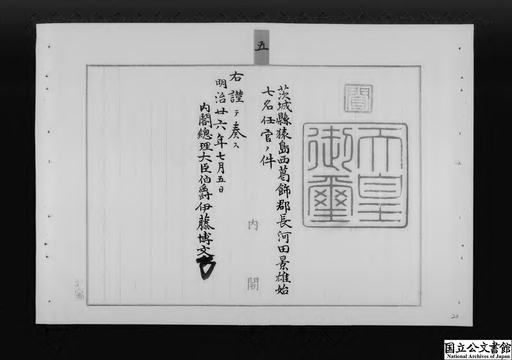 五
聞
天皇
御璽
茨城縣猿島西葛飾郡長河田景雄始
七名任官ノ件
右謹テ奏ス
明治廿六年七月五日
内閣總理大臣伯爵伊藤博文
内閣
国立公文書館
National Archives of Japan